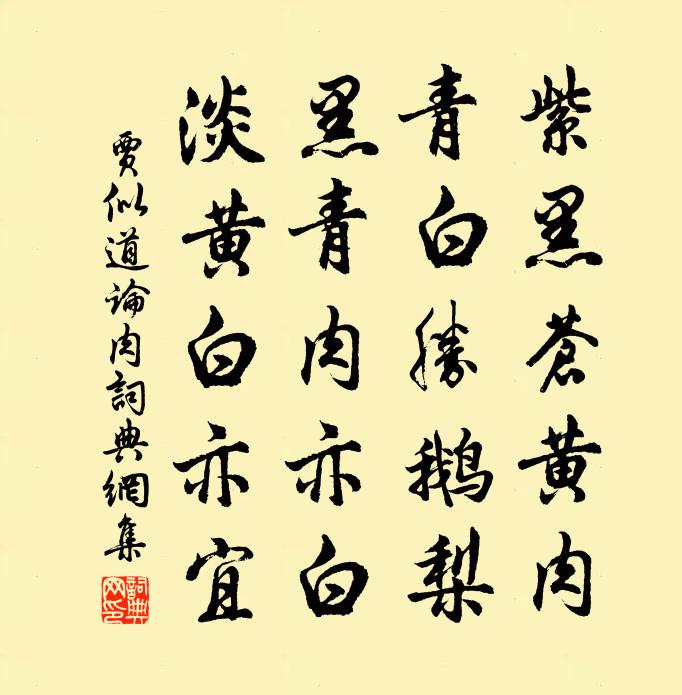 紫黑蒼黃肉
青白勝鵝梨
黑青肉亦白
淡黃白亦宜
賈似道論肉詞典網集
詞典網印